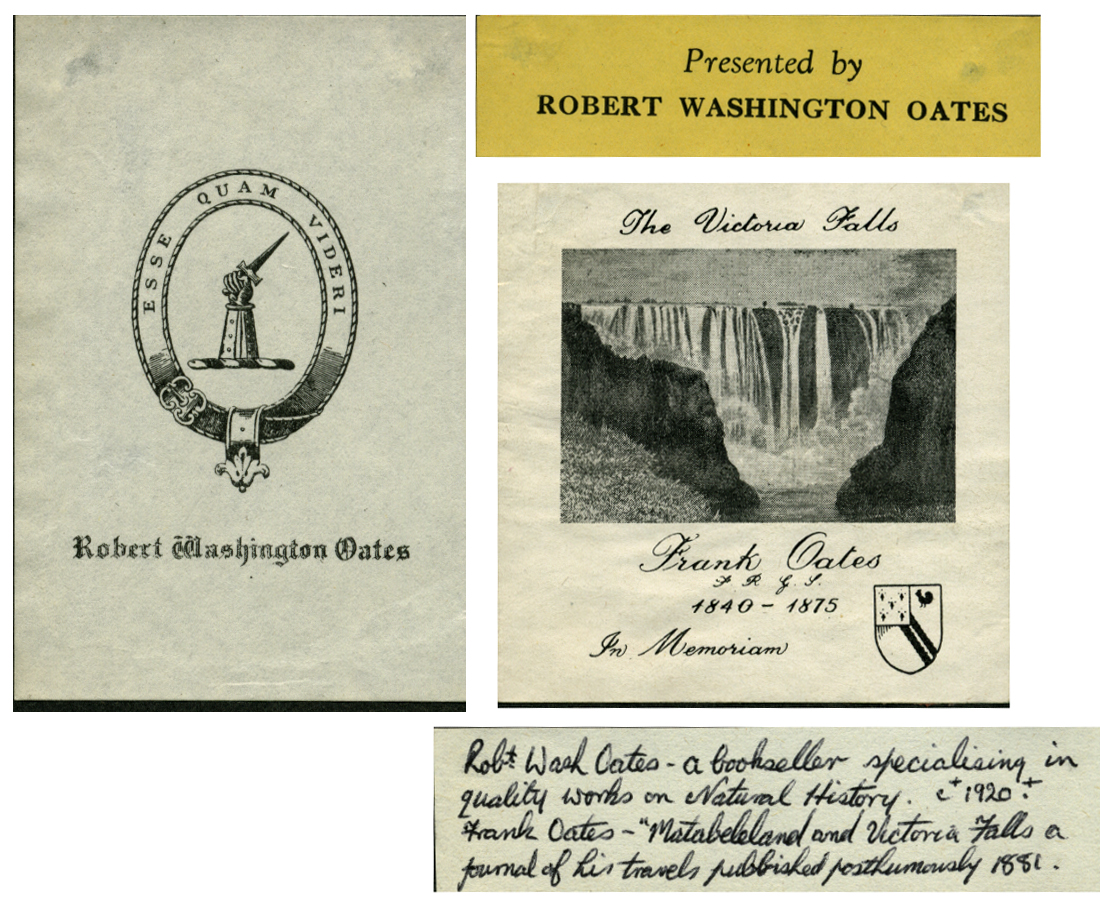 ESSE QUAM VIDERI
Robert Washington Oates
Presented by
ROBERT WASHINGTON OATES
The Victoria Falls
Frank Oates
F. R. G. S.
1840 - 1875
In Memoriam
Robt. Wash Oates - a bookseller specialising in
quality works on Natural History. c+ 1920.+
Frank Oates - "Matabeleland and Victoria Falls a
journal of his travels published posthumously 1881.